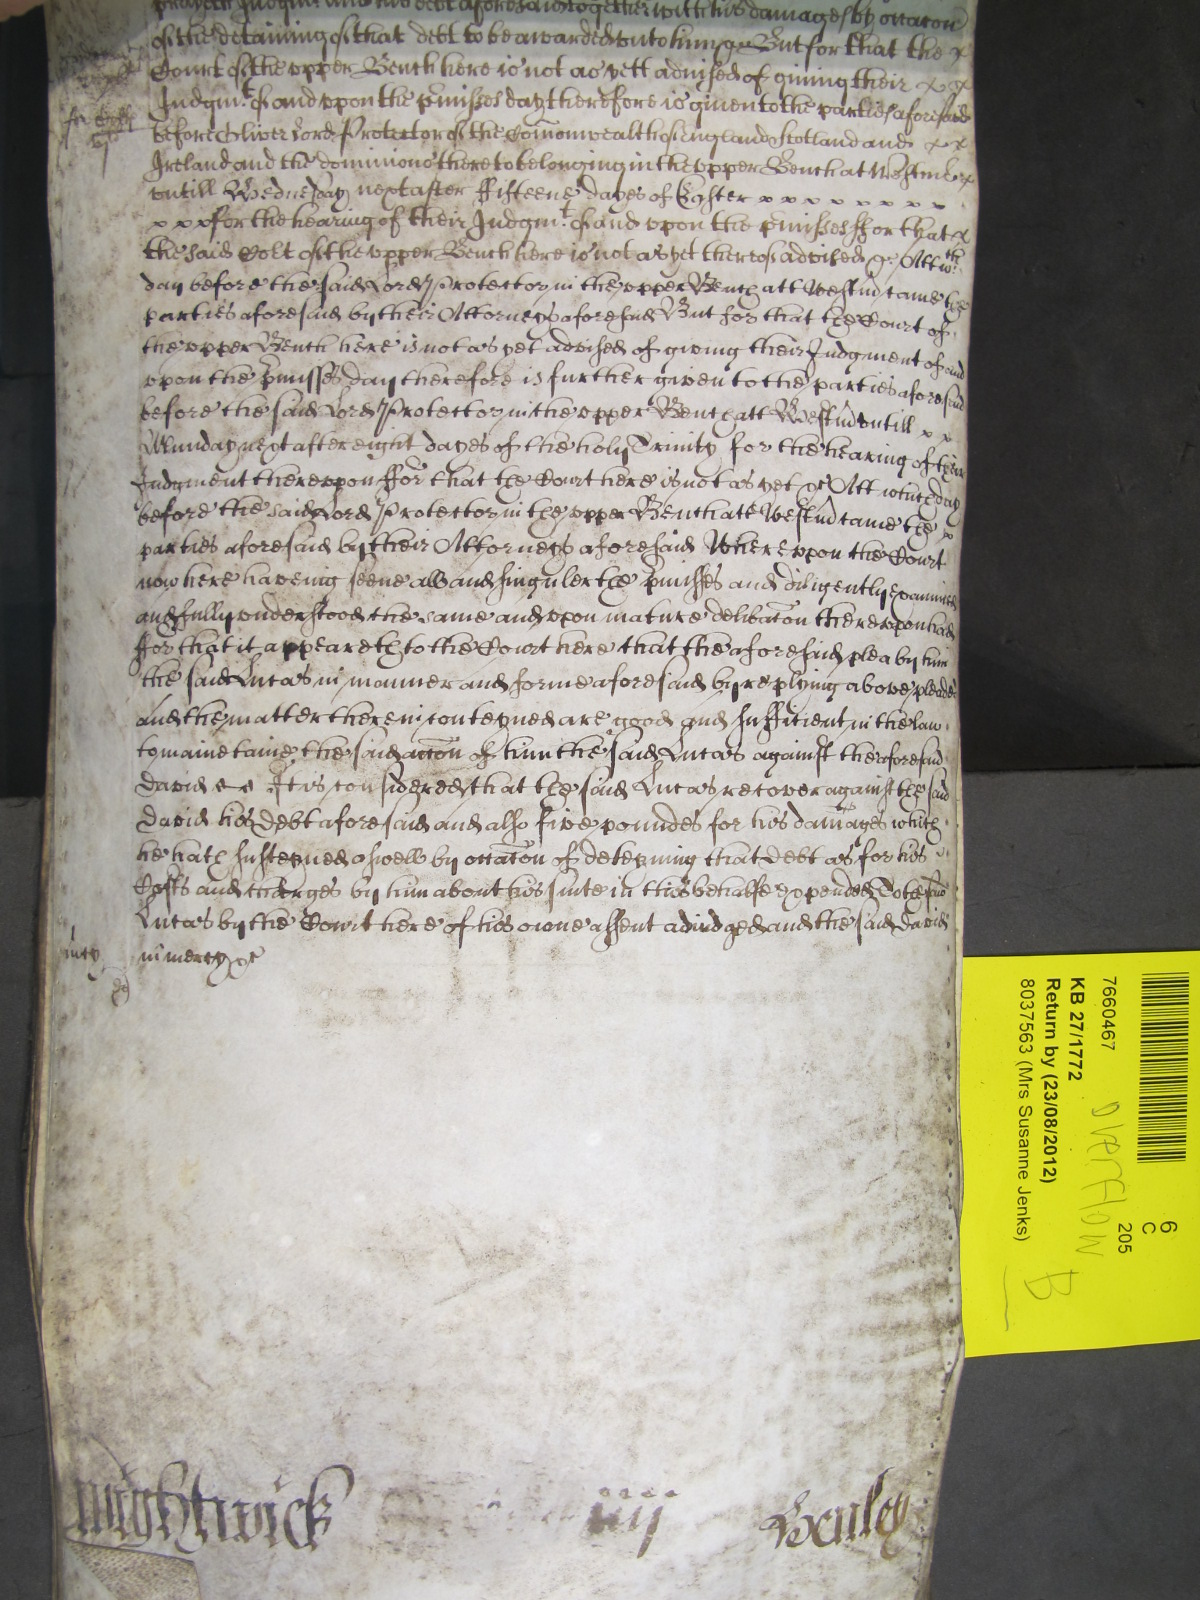 prayeth Judgmt and his debt aforesaid together with his damages by occacon
of the detaining of that debt to be awarded unto him &c But for that the x
Court of the upper Bench here is not as yett advised of giving their x x
Judgmt of and vpon the p'misses day therefore is given to the parties aforesaid
before Oliver Lord Protector of the Comonwealth of England Scotland and x x
Ireland and the dominions thereto belonging in the vpper Bench at Westm'r x
vntill Wednesday next after fifteene dayes of Easter x x x x x x x x
x x x for the hearing of their Judgmt of and vpon the p'misses ffor that x
the said Court of the vpper Bench here is not as yet thereof advised &c Att wch
day before the said Lord Protector in the vpper Bench att Westm' came the
parties aforesaid by their Attorneys aforesaid But for that the Court of
the vpper Bench here is not as yet advised of giving their Judgment of and
vpon the p'misses day therefore is further given to the parties aforesaid
before the said Lord Protector in the vpper Bench att Westm' vntill x x
Munday next after eight dayes of the holy Trinity for the hearing of their
Judgment therevpon ffor that the Court here is not as yet &c Att which day
before the said Lord Protector in the vpper Bench att Westm' came the x
parties aforesaid by their Attorneys aforesaid Wherevpon the Court
now here haveing seene all and singuler the p'misses and diligently examined
and fully vnderstood the same and vpon mature delibacon therevpon had
ffor that it appeareth to the Court here that the aforesaid plea by him
the said Lucas in manner and forme aforesaid by replying above pleaded
and the matter therein conteyned are good and sufficient in the law
to mainetaine the said accon of him the said Lucas against the aforesaid
David It is considered that the said Lucas recover against the said
David his debt aforesaid and also five poundes for his damages which
he hath susteyned aswell by occacon of deteyning that debt as for his
Costs and charges by him about his suite in this behalfe expended To the said
Lucas by the Court here of his owne assent adiudged and the said David
in mercy &c
mcy
Wightwick iiij Henley
7660467
KB 27/1772
Return by (23/08/2012)
8037563 (Mrs Susanne Jenks)
6
C
205
OVERFLOW
B